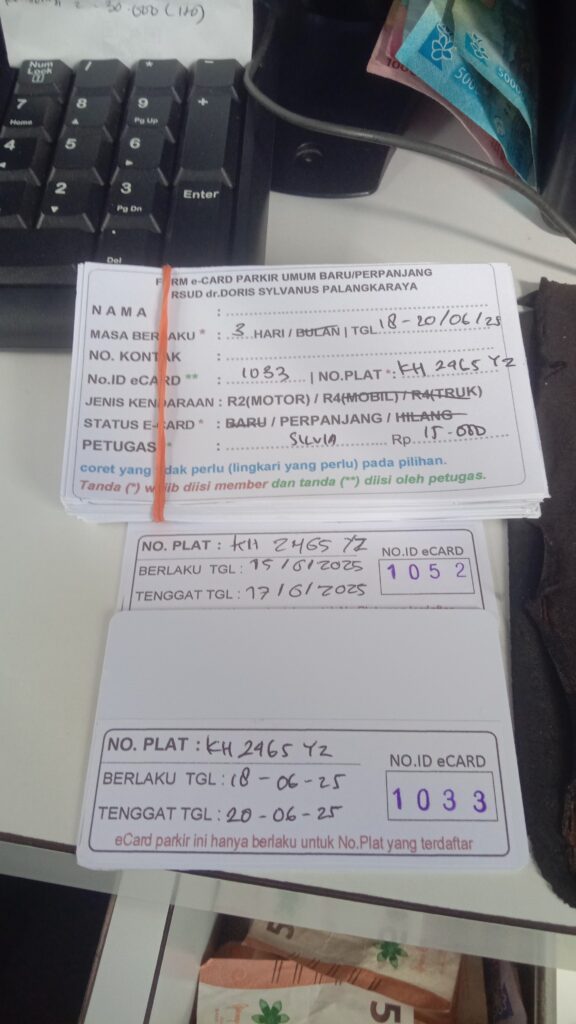 30.000 (140)
Num Lock
/
*
-
7 Home
8
9 Pg Up
+
4
5
6
2
3 Pg Dn
Enter
.
Del
100
500
5000
FORM e-CARD PARKIR UMUM BARU/PERPANJANG
RSUD dr.DORIS SYLVANUS PALANGKARAYA
NAMA :
MASA BERLAKU * : 3 HARI / BULAN | TGL 18-20/06/25
NO. KONTAK :
No.ID eCARD ** : 1033 | NO.PLAT * : KH 2465 YZ
JENIS KENDARAAN : R2(MOTOR) / R4(MOBIL) / R4(TRUK)
STATUS E-CARD * : BARU / PERPANJANG / HILANG
PETUGAS ** : SILVIA Rp 15.000
coret yang tidak perlu (lingkari yang perlu) pada pilihan.
Tanda (*) wajib diisi member dan tanda (**) diisi oleh petugas.
NO. PLAT : KH 2465 YZ
NO.ID eCARD
BERLAKU TGL : 15/6/2025
1052
TENGGAT TGL : 17/6/2025
NO. PLAT : KH 2465 YZ
NO.ID eCARD
BERLAKU TGL : 18-06-25
1033
TENGGAT TGL : 20-06-25
eCard parkir ini hanya berlaku untuk No.Plat yang terdaftar
5
5